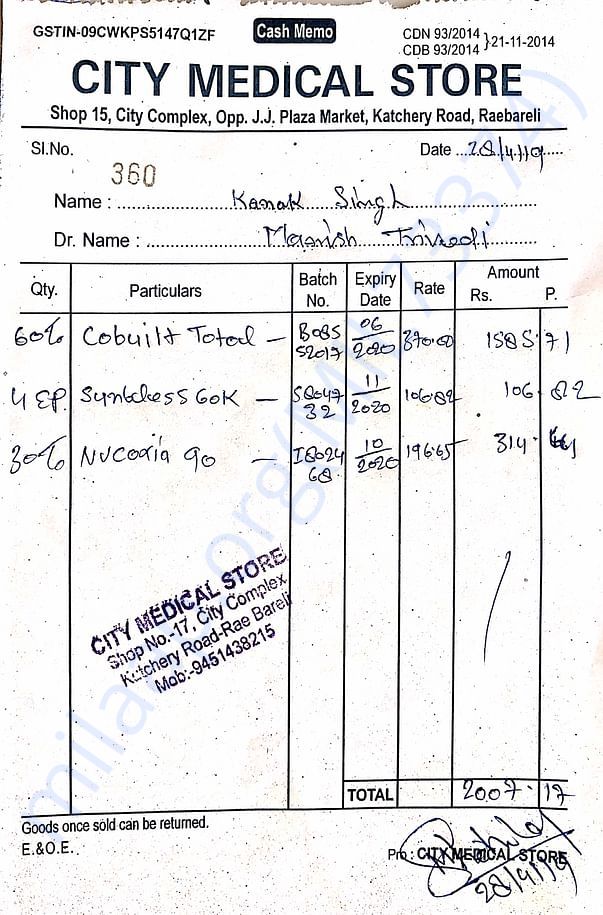 GSTIN-09CWKPS5147Q1ZF Cash Memo CDN 93/2014 }21-11-2014
CDB 93/2014
CITY MEDICAL STORE
Shop 15, City Complex, Opp. J.J. Plaza Market, Katchery Road, Raebareli
Sl.No. 360 Date ...28/4/19.....
Name : Kanak Singh
Dr. Name : Manish Trivedi
Qty. Particulars Batch No. Expiry Date Rate Amount Rs. P.
Cobuilt Total — 06/2020 370.00 1585.71
60K — 5804732 11/2020 106.82 106.82
Nucoxia 90 — I802468 10/2020 196.65 314.
CITY MEDICAL STORE
Shop No.-17, City Complex
Katchery Road-Rae Bareli
Mob:-9451438215
TOTAL 2007.17
Goods once sold can be returned.
E.&O.E. Pro : CITY MEDICAL STORE